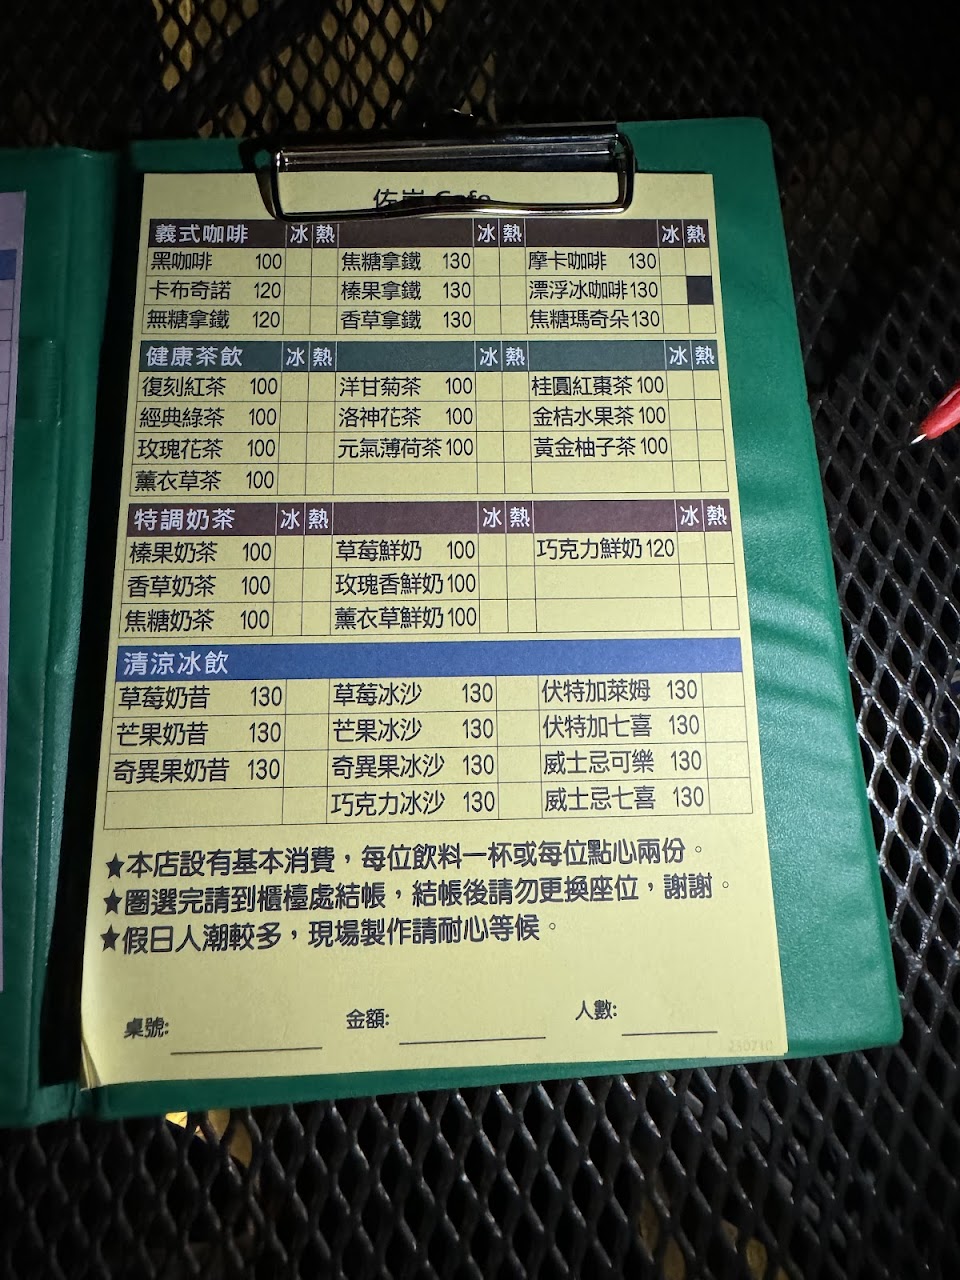 佐岸 Cafe
義式咖啡 冰 熱 冰 熱 冰 熱
黑咖啡 100 焦糖拿鐵 130 摩卡咖啡 130
卡布奇諾 120 榛果拿鐵 130 漂浮冰咖啡 130
無糖拿鐵 120 香草拿鐵 130 焦糖瑪奇朵 130
健康茶飲 冰 熱 冰 熱 冰 熱
復刻紅茶 100 洋甘菊茶 100 桂圓紅棗茶 100
經典綠茶 100 洛神花茶 100 金桔水果茶 100
玫瑰花茶 100 元氣薄荷茶 100 黃金柚子茶 100
薰衣草茶 100
特調奶茶 冰 熱 冰 熱 冰 熱
榛果奶茶 100 草莓鮮奶 100 巧克力鮮奶 120
香草奶茶 100 玫瑰香鮮奶 100
焦糖奶茶 100 薰衣草鮮奶 100
清涼冰飲
草莓奶昔 130 草莓冰沙 130 伏特加萊姆 130
芒果奶昔 130 芒果冰沙 130 伏特加七喜 130
奇異果奶昔 130 奇異果冰沙 130 威士忌可樂 130
巧克力冰沙 130 威士忌七喜 130
★本店設有基本消費，每位飲料一杯或每位點心兩份。
★圈選完請到櫃檯處結帳，結帳後請勿更換座位，謝謝。
★假日人潮較多，現場製作請耐心等候。
桌號: 金額: 人數:
230710